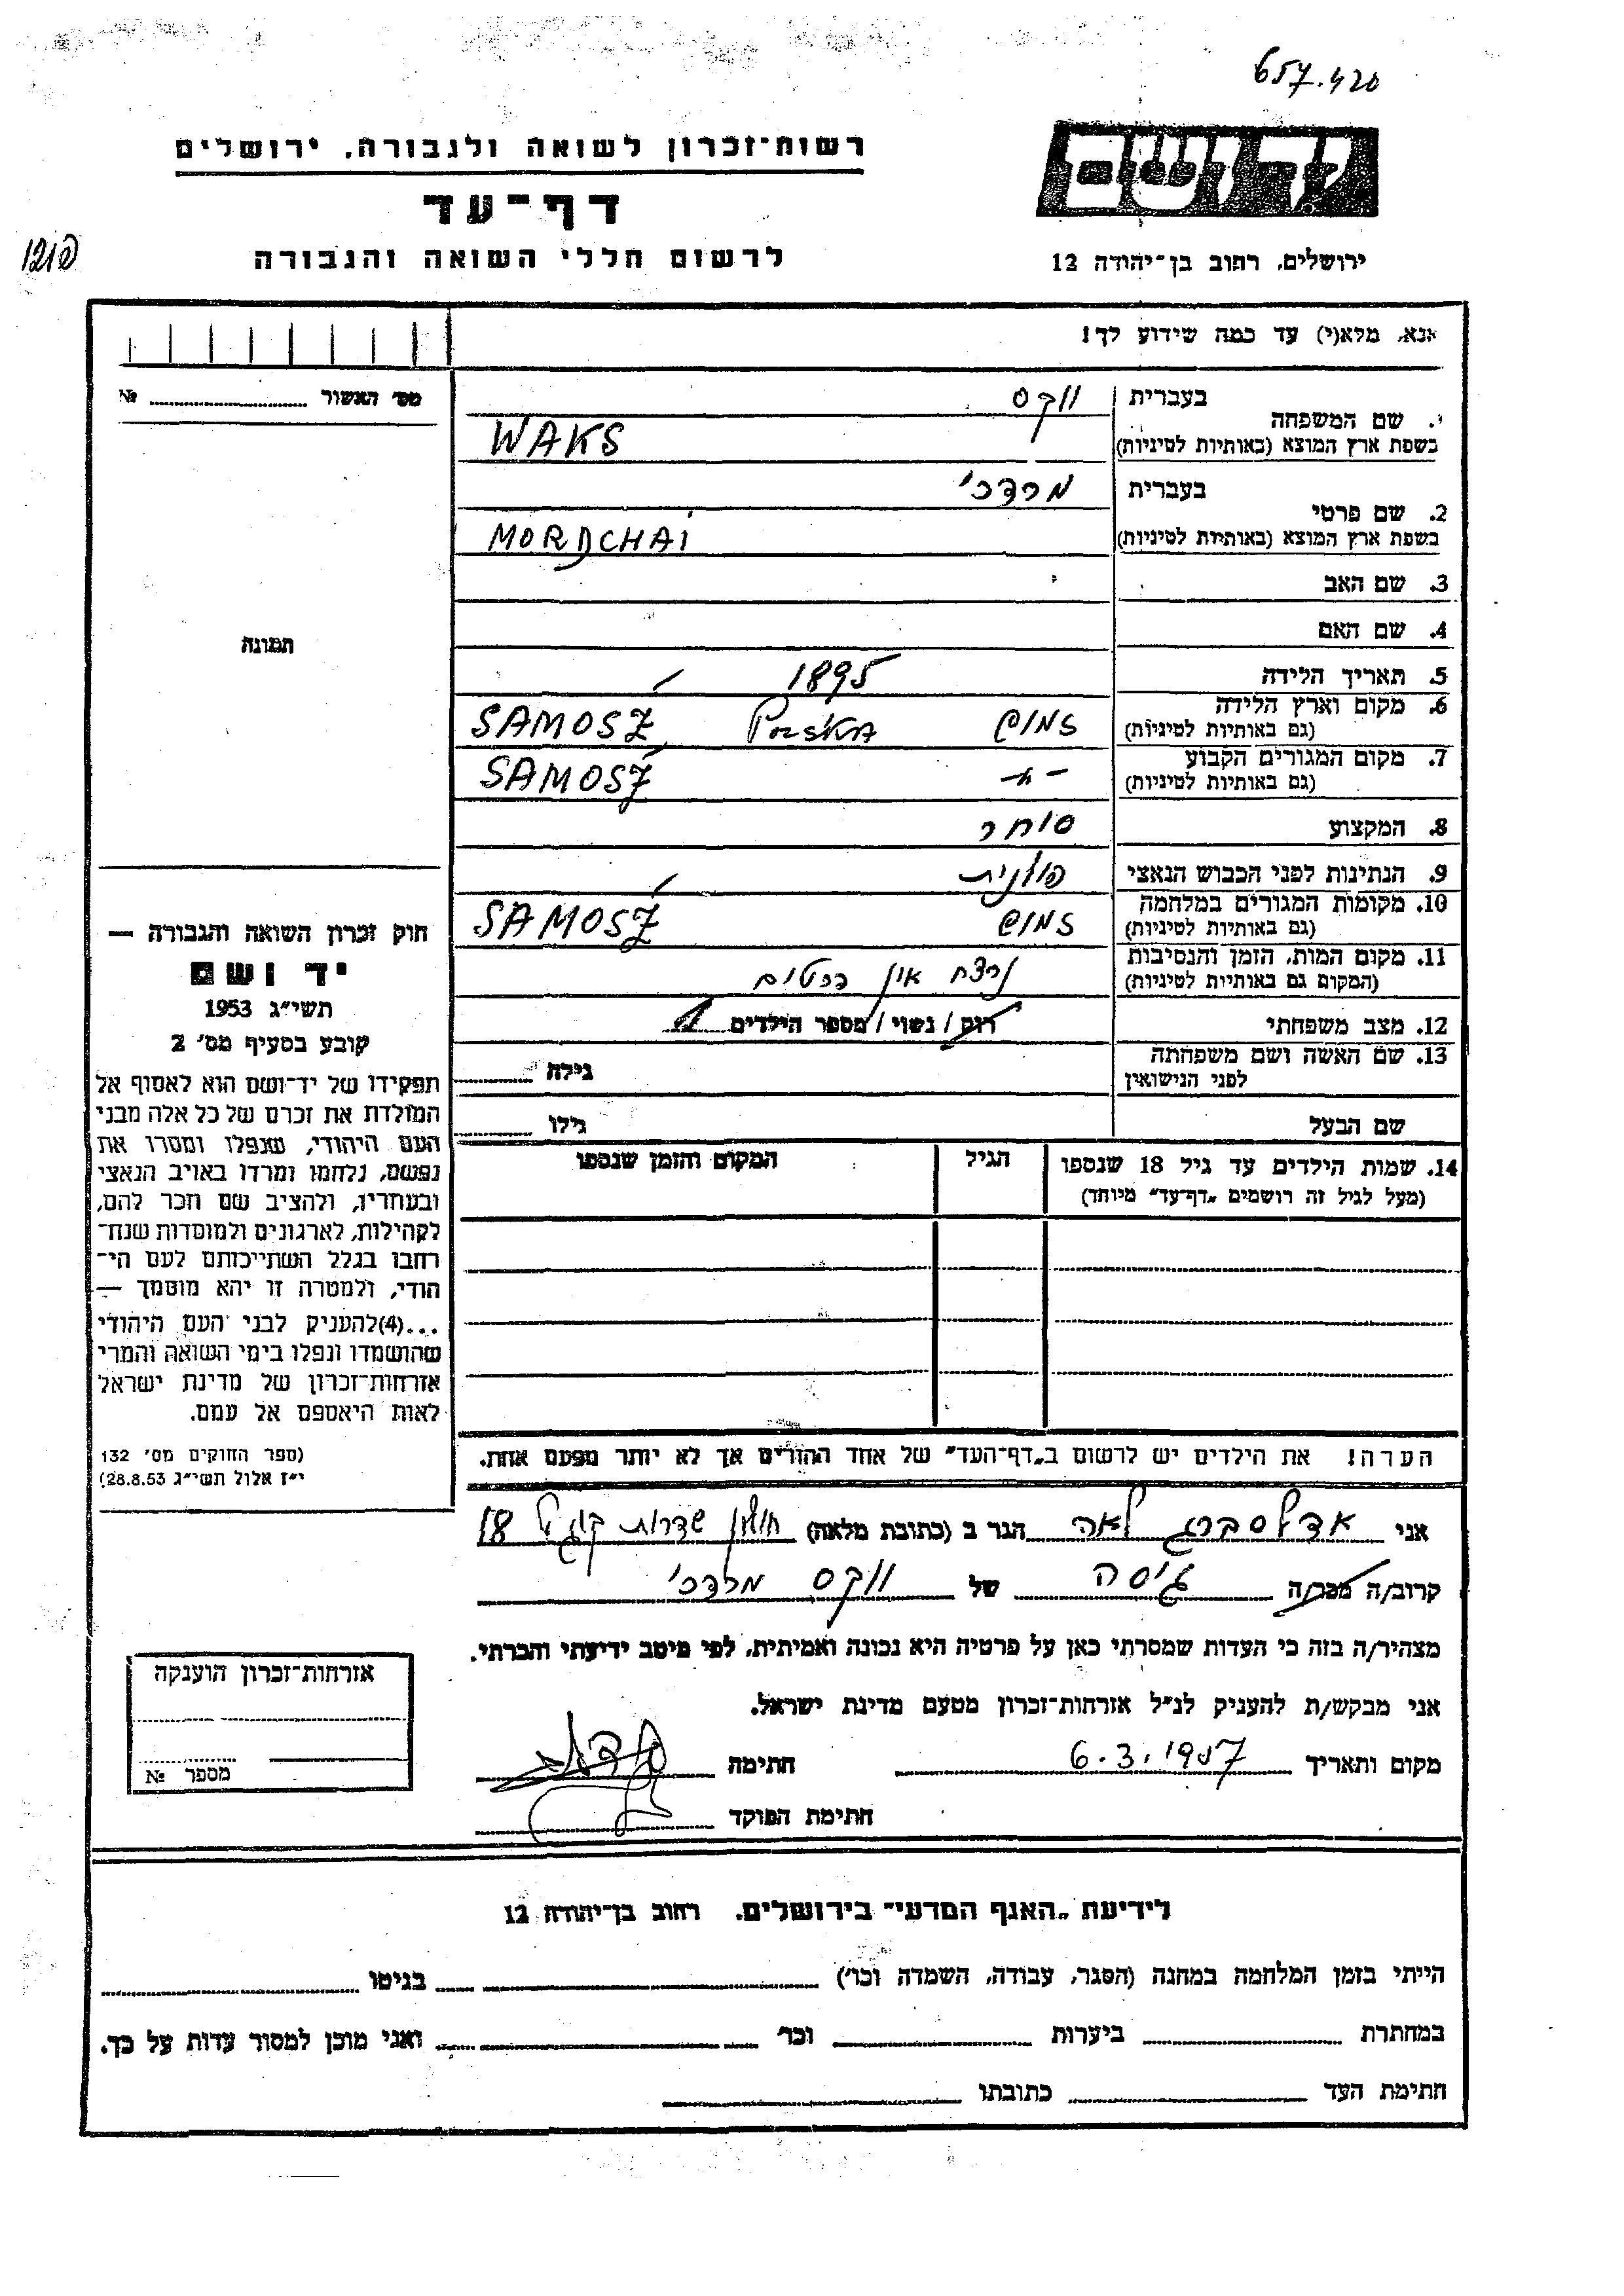 657.420
רשות־זכרון לשואה ולגבורה, ירושלים
דף־עד
לרשום חללי השואה והגבורה
ירושלים, רחוב בן־יהודה 12
אנא, מלא(י) עד כמה שידוע לך!
מס׳ האשור № 
1. שם המשפחה
בעברית ווקס
בשפת ארץ המוצא (באותיות לטיניות) WAKS
2. שם פרטי
בעברית מרדכי
בשפת ארץ המוצא (באותיות לטיניות) MORDCHAI
3. שם האב
4. שם האם
תמונה
5. תאריך הלידה 1895
6. מקום וארץ הלידה
(גם באותיות לטיניות) זמושץ Polska SAMOSZ
7. מקום המגורים הקבוע
(גם באותיות לטיניות) -״- SAMOSZ
8. המקצוע סוחר
9. הנתינות לפני הכבוש הנאצי פולנית
10. מקומות המגורים במלחמה
(גם באותיות לטיניות) SAMOSZ
11. מקום המות, הזמן והנסיבות
(המקום גם באותיית לטיניות) נרצח
12. מצב משפחתי רווק / נשוי / מספר הילדים 1
13. שם האשה ושם משפחתה
לפני הנישואין גילה
שם הבעל גילו
14. שמות הילדים עד גיל 18 שנספו הגיל המקום והזמן שנספו
(מעל לגיל זה רושמים „דף־עד״ מיוחד)
הערה! את הילדים יש לרשום ב„דף־העד״ של אחד ההורים אך לא יותר מפעם אחת.
חוק זכרון השואה והגבורה —
יד ושם
תשי״ג 1953
קובע בסעיף מס׳ 2
תפקידו של יד־ושם הוא לאסוף אל
המולדת את זכרם של כל אלה מבני
העם היהודי, שנפלו ומסרו את
נפשם, נלחמו ומרדו באויב הנאצי
ובעוזריו, ולהציב שם וזכר להם,
לקהילות, לארגונים ולמוסדות שנח־
רבו בגלל השתייכותם לעם הי־
הודי, ולמטרה זו יהא מוסמך —
...(4) להעניק לבני העם היהודי
שהושמדו ונפלו בימי השואה והמרי
אזרחות־זכרון של מדינת ישראל
לאות היאספם אל עמם.
(ספר החוקים מס׳ 132
י״ז אלול תשי״ג 28.8.53)
אני אדלסברג לאה הגר ב (כתובת מלאה) חולון שדרות קוגל 18
קרוב/ה מכר/ה גיסה של ווקס מרדכי
מצהיר/ה בזה כי העדות שמסרתי כאן על פרטיה היא נכונה ואמיתית, לפי מיטב ידיעתי והכרתי.
אני מבקש/ת להעניק לנ״ל אזרחות־זכרון מטעם מדינת ישראל.
מקום ותאריך 6.3.1957 חתימה
חתימת הפוקד
אזרחות־זכרון הוענקה
מספר №
לידיעת „האגף המדעי״ בירושלים, רחוב בן־יהודה 12
הייתי בזמן המלחמה במחנה (הסגר, עבודה, השמדה וכו׳) בגיטו
במחתרת ביערות וכו׳ ואני מוכן למסור עדות על כך.
חתימת העד כתובתו